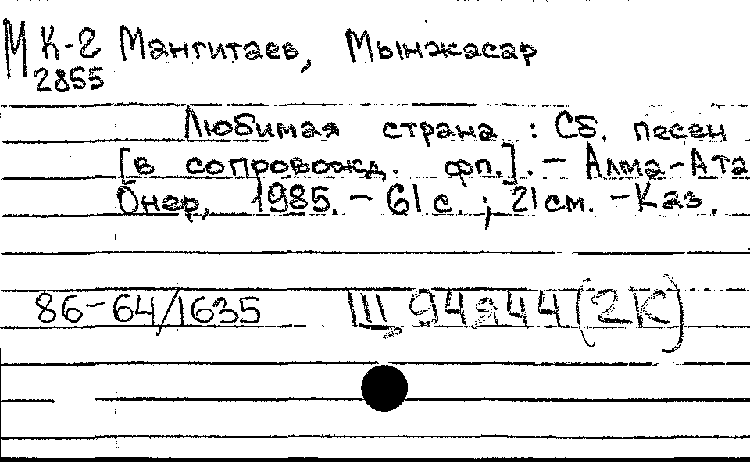 М К-2 Мангитаев, Мынжасар
2855
Любимая страна : Сб. песен
[в сопровожд. фп.]. - Алма-Ата
Өнер, 1985. - 61 с. ; 21 см. - Каз.
86-64/1635 Щ 94я44(2К)